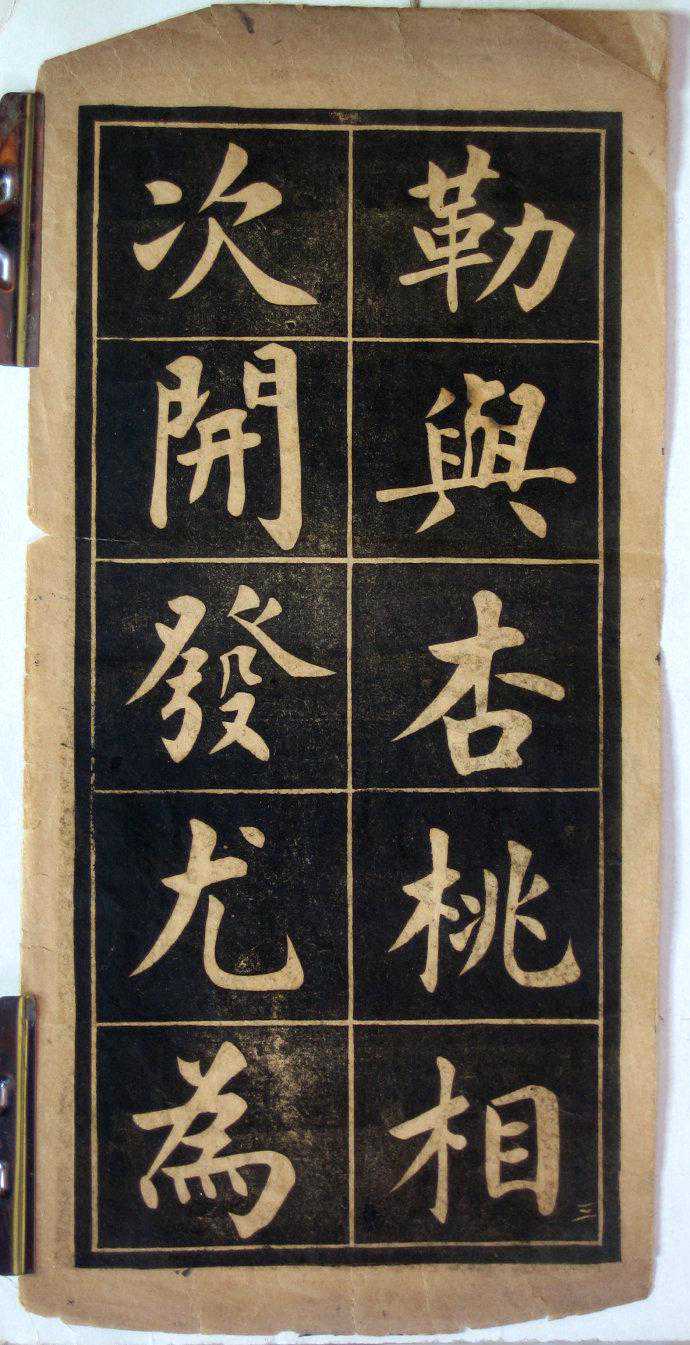 勒與杏桃相
三
次開發尤為